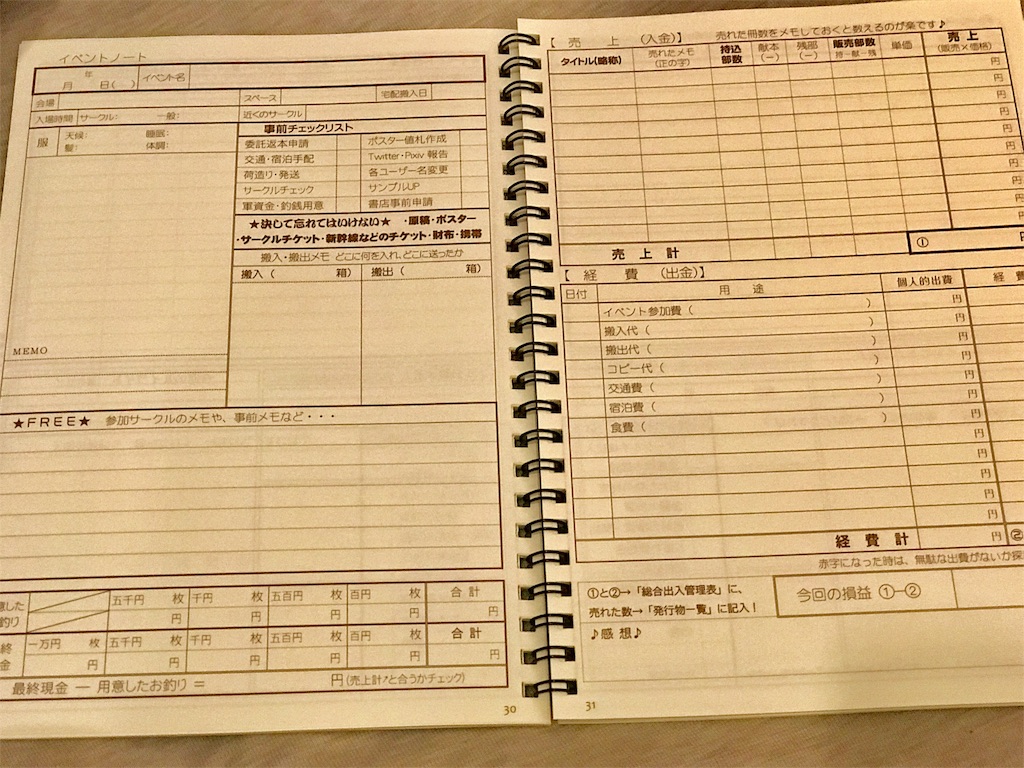 イベントノート
年
月 日( ) イベント名
会場 スペース 宅配搬入日
入場時間 サークル: 一般: 近くのサークル
服 天候: 睡眠:
髪: 体調:
事前チェックリスト
委託返本申請 ポスター値札作成
交通・宿泊手配 Twitter・Pixiv 報告
荷造り・発送 各コーザー名変更
サークルチェック サンプルUP
軍資金・釣銭用意 書店事前申請
★決して忘れてはいけない★ ・原稿・ポスター
・サークルチケット・新幹線などのチケット・財布・携帯
搬入・搬出メモ どこに何を入れ、どこに送ったか
搬入 ( 箱) 搬出 ( 箱)
MEMO
★FREE★ 参加サークルのメモや、事前メモなど・・・
五千円 枚 千円 枚 五百円 枚 百円 枚 合計
意した
釣り 円 円 円 円 円
終 一万円 枚 五千円 枚 千円 枚 五百円 枚 百円 枚 合計
金 円 円 円 円 円 円
最終現金 ― 用意したお釣り = 円 (売上計♪と合うかチェック)
30
【 売 上 (入金)】 売れた冊数をメモしておくと数えるのが楽です♪
タイトル(略称) 売れたメモ(正の字) 持込部数 献本(ー) 残部(ー) 販売部数 持ー献ー残 単価 売上(販売×価格)
円
円
円
円
円
円
円
円
円
円
売 上 計 ① 円
【 経 費 (出金)】
日付 用 途 個人的出費 経 費
イベント参加費 ( ) 円
搬入代 ( ) 円
搬出代 ( ) 円
コピー代 ( ) 円
交通費 ( ) 円
宿泊費 ( ) 円
食費 ( ) 円
円
円
円
円
円
経 費 計 円 ②
赤字になった時は、無駄な出費がないか探
①と②→「総合出入管理表」に、
売れた数→「発行物一覧」に記入!
今回の損益 ①―②
♪感 想♪
31